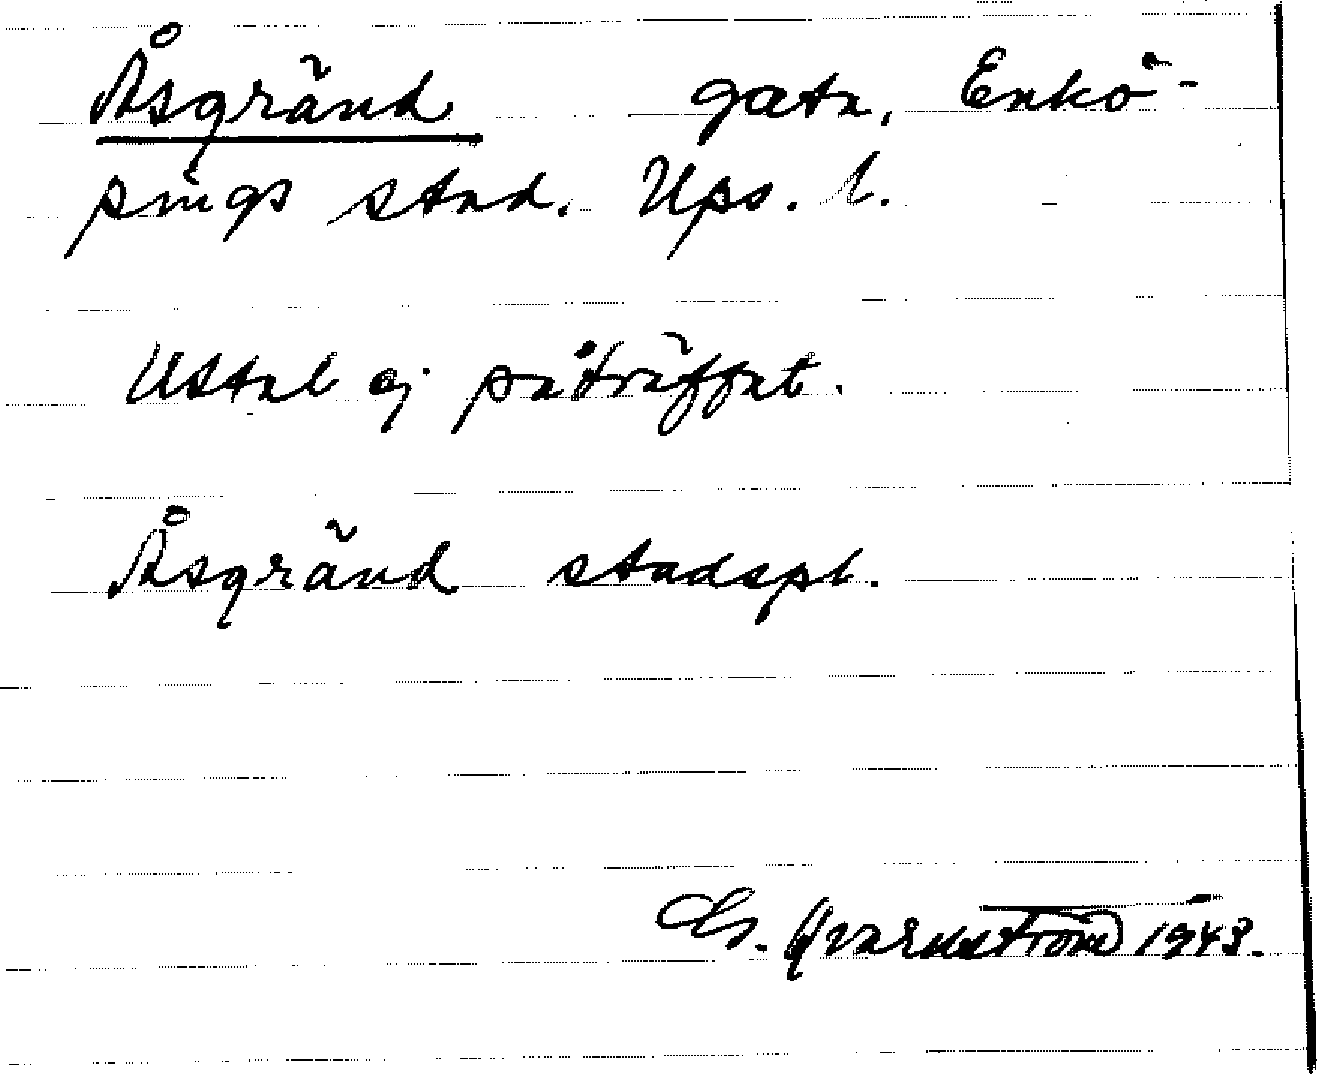 Åsgränd gata, Enkö-
pings stad. Ups. l.
Uttal ej påträffat.
Åsgränd stadspl.
G. Qvarnström 1943.